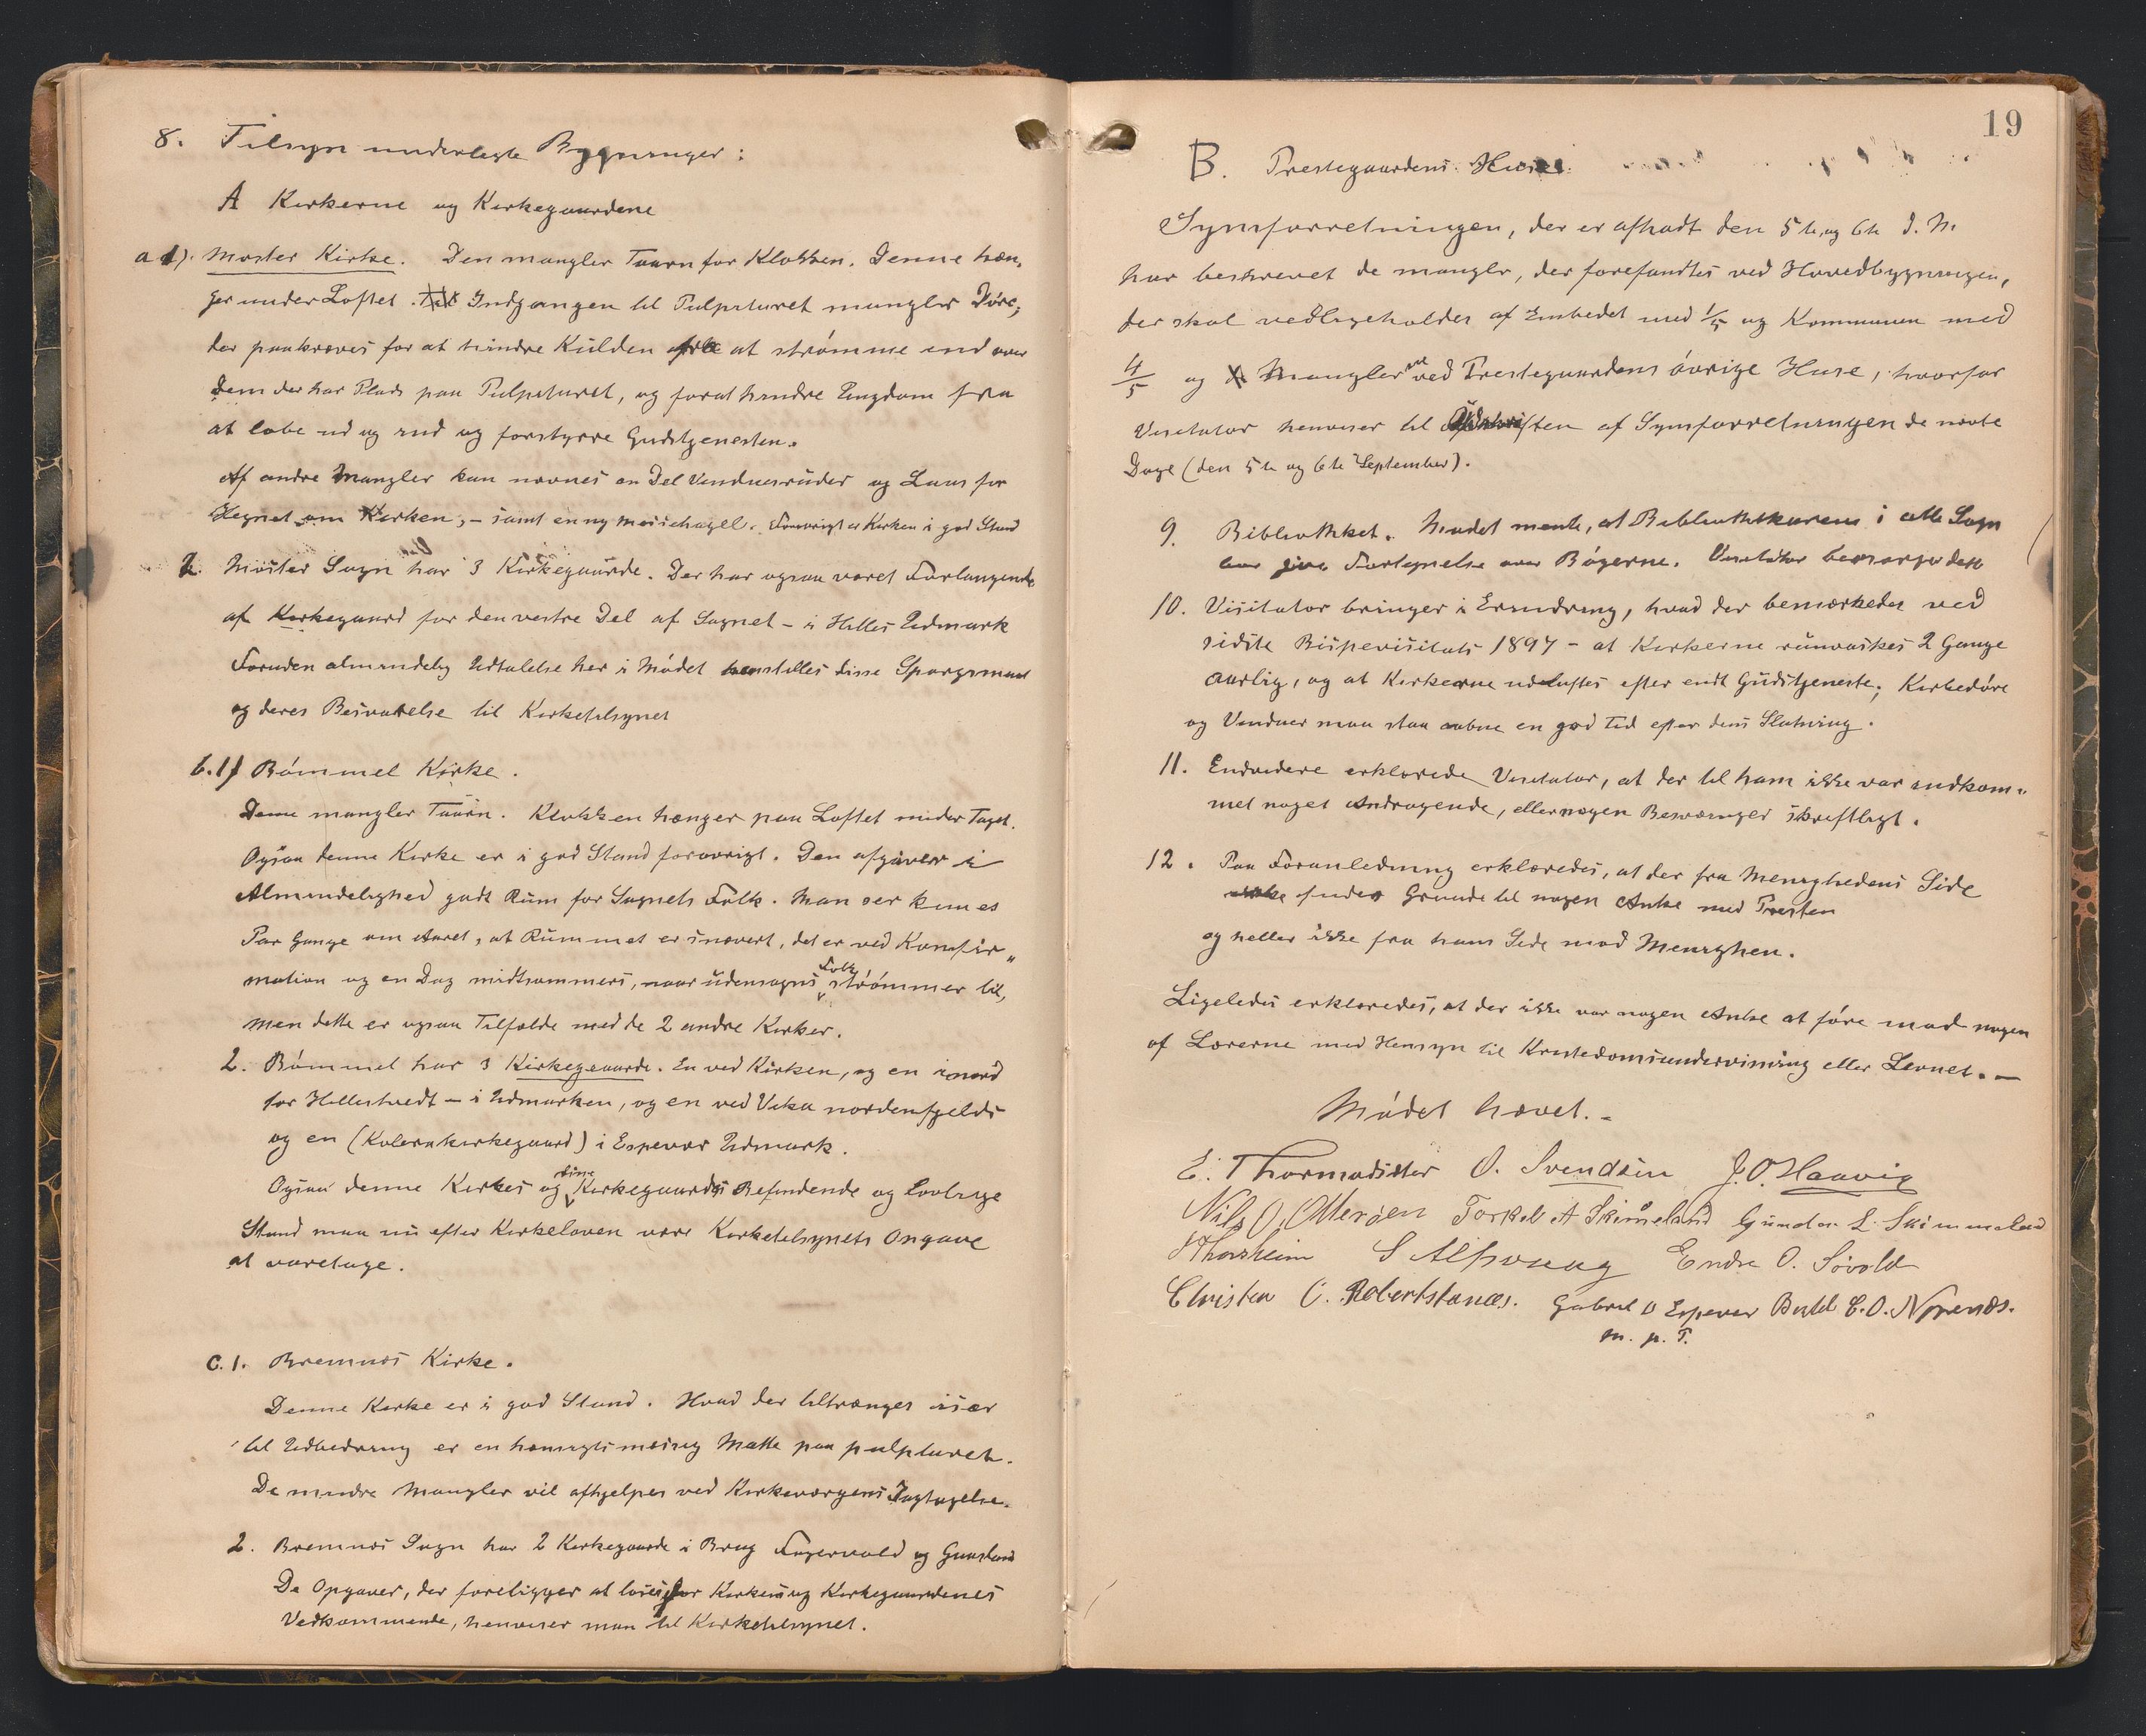 8. Tilsyn underlagte Bygninger:
A Kirkerne og Kirkegaardene
a 1). Moster Kirke. Den mangler Taarn for Klokken. Denne hæn-
ger under Loftet. Indgangen til Pulpituret mangler Døre,
der paakræves for at hindre Kulden at strømme ind over
dem der har Plads paa Pulpituret, og forat hindre Ungdom fra
at løbe ud og ind og forstyrre Gudstjenesten.
Af andre Mangler kan nævnes en Del Vinduesruder og Laas for
Hegnet om Kirken, – samt en ny Messehagel. Forøvrigt er Kirken i god Stand
2. Moster Sogn har 3 Kirkegaarde. Der har ogsaa været Forlangende
af Kirkegaard for den vestre Del af Sognet – i Hilles Udmark
Foruden almindelig Udtalelse her i Mødet henstilles disse Spørgsmaal
og deres Besvarelse til Kirketilsynet
b. 1) Bømmel Kirke.
Denne mangler Taarn. Klokken hænger paa Loftet under Taget.
Ogsaa denne Kirke er i god Stand forøvrigt. Den afgiver i
Almindelighed godt Rum for Sognets Folk. Man ser kun es
Par Gange om Aaret, at Rummet er snævert, det er ved Konfir„
mation og en Dag midtsommers, naar udensogns Folk strømmer til,
men dette er ogsaa Tilfælde med de 2 andre Kirker.
2. Bømmel har 3 Kirkegaarde. En ved Kirken, og en i nord
for Hillestvedt – i Udmarken, og en ved Vika nordenfjelds
og en (Kolerakirkegaard) i Espevær Udmark.
Ogsaa denne Kirkes og disse Kirkegaards Befindende og lovlige
Stand maa nu efter Kirkeloven være Kirketilsynets Opgave
at varetage.
C. 1. Bremnes Kirke.
Denne Kirke er i god Stand. Hvad der tiltrænges især
til Udbedring er en hensigtsmæssig Matte paa pulpituret.
De mindre Mangler vil afhjelpes ved Kirkeværgens Iagtagelse.
2. Bremnes Sogn har 2 Kirkegaarde i Brug Fagervold og Gaasland
De Opgaver, der foreligger at løses for Kirkens og Kirkegaardenes
Vedkommende, henviser man til Kirketilsynet.
19
B. Prestegaardens Huse
Synsforretningen, der er afholdt den 5te og 6te d. M.
har beskrevet de mangler, der forefandtes ved Hovedbygningen,
der skal vedligeholdes af Embedet med 1/5 og Kommunen med
4/5 og Mangler ved Prestegaardens øvrige Huse, hvorfor
Visitator henviser til Afskriften af Synsforretningen de nævte
Dage (den 5te og 6te September).
9. Bibliotheket. Mødet mente, at Bibliothekarerne i alle Sogn
bør give Fortegnelse over Bøgerne. Visitator besørger dette
10. Visitator bringer i Erindring, hvad der bemerkedes ved
sidste Bispevisitats 1897 – at Kirkerne rundvaskes 2 Gange
aarlig, og at Kirkerne udluftes efter endt Gudstjeneste; Kirkedøre
og Vinduer maa staa aabne en god Tid efter dens Slutning.
11. Endvidere erklærede Visitator, at der til ham ikke var indkom„
met noget Andragende, eller nogen Besværinger skreftligt.
12. Paa Foranledning erklæredes, at der fra Menighedens Side
ikke findes Grunde til nogen Anke mod Presten
og heller ikke fra hans Side mod Menighen.
Ligeledes erklæredes, at der ikke var nogen Anke at føre mod nogen
af Lærerne med Hensyn til Kristendomsundervisning eller Levnet. –
Mødet hævet. –
E. Thormodsæter O. Svendsen J. O. Haavig
Nils O. Ottersen Torkel A Skimmeland Gunder L. Skimmeland
Thorsheim S Alsvaag Endre O. Søvold
Christen C. Robertstanes. Gabriel O Espevær Bertel E. O. Nyvends.
m. p. P.